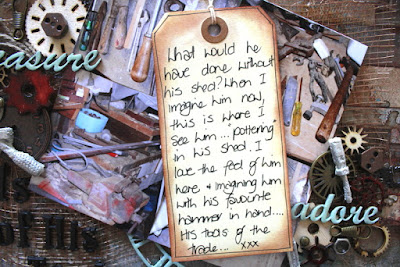 What would he
have done without
his shed? When I
imagine him now,
this is where I
see him... "pottering"
in his shed. I
love the feel of him
here, & imagining him
with his favourite
hammer in hand....
His tools of the
trade... xxx
easure
adore
his